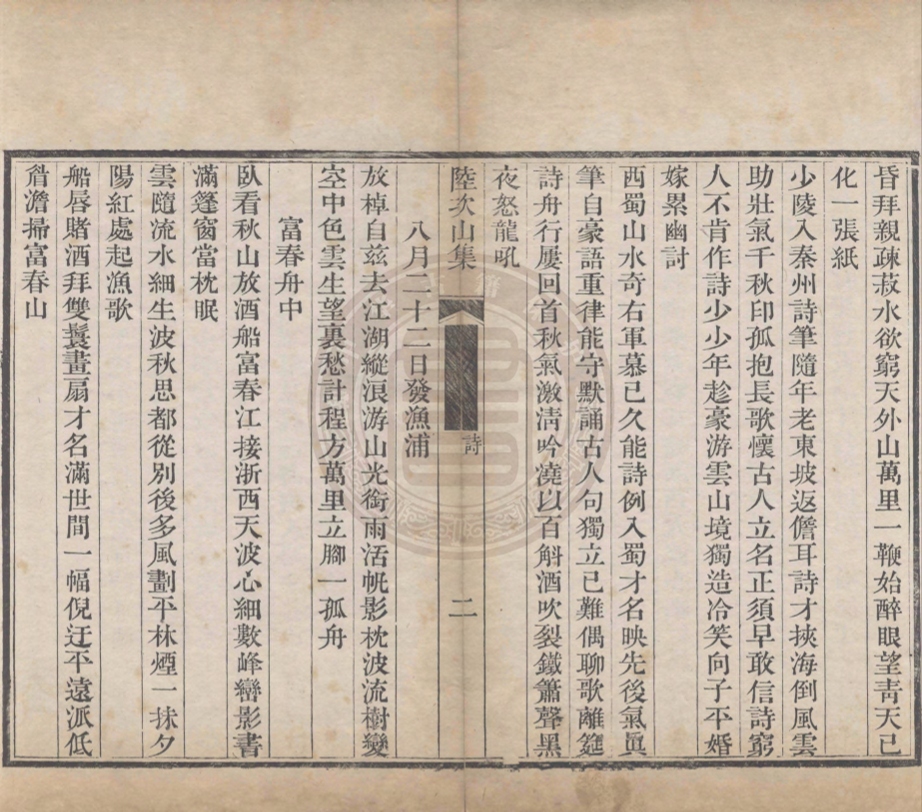 昏拜親疎菽水欲窮天外山萬里一鞭始醉眼望靑天已
化一張紙
少陵入秦州詩筆隨年老東坡返儋耳詩才挾海倒風雲
助壯氣千秋印孤抱長歌懷古人立名正須早敢信詩窮
人不肯作詩少少年趁豪游雲山境獨造冷笑向子平婚
嫁累幽討
西蜀山水奇右軍慕已久能詩例入蜀才名映先後氣眞
筆自豪語重律能守默誦古人句獨立已難偶聊歌離筵
詩舟行屢回首秋氣激淸吟澆以百斛酒吹裂鐵簫聲黑
夜怒龍吼
陸次山集 詩 二
八月二十二日發漁浦
放棹自茲去江湖縱浪游山光銜雨活帆影枕波流樹變
空中色雲生望裏愁計程方萬里立腳一孤舟
富春舟中
臥看秋山放酒船富春江接浙西天波心細數峰巒影書
滿篷窗當枕眠
雲隨流水細生波秋思都從別後多風劃平林煙一抹夕
陽紅處起漁歌
船唇賭酒拜雙鬟畫扇才名滿世間一幅倪迂平遠派低
徣澹掃富春山